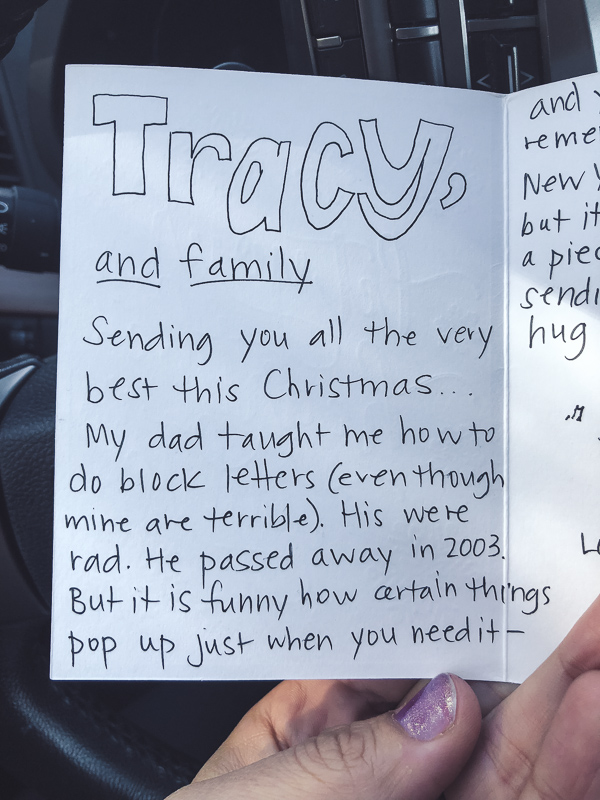 Tracy,
and family
Sending you all the very
best this Christmas...
My dad taught me how to
do block letters (even though
mine are terrible). His were
rad. He passed away in 2003.
But it is funny how certain things
pop up just when you need it–
and
New
but it
a
hug